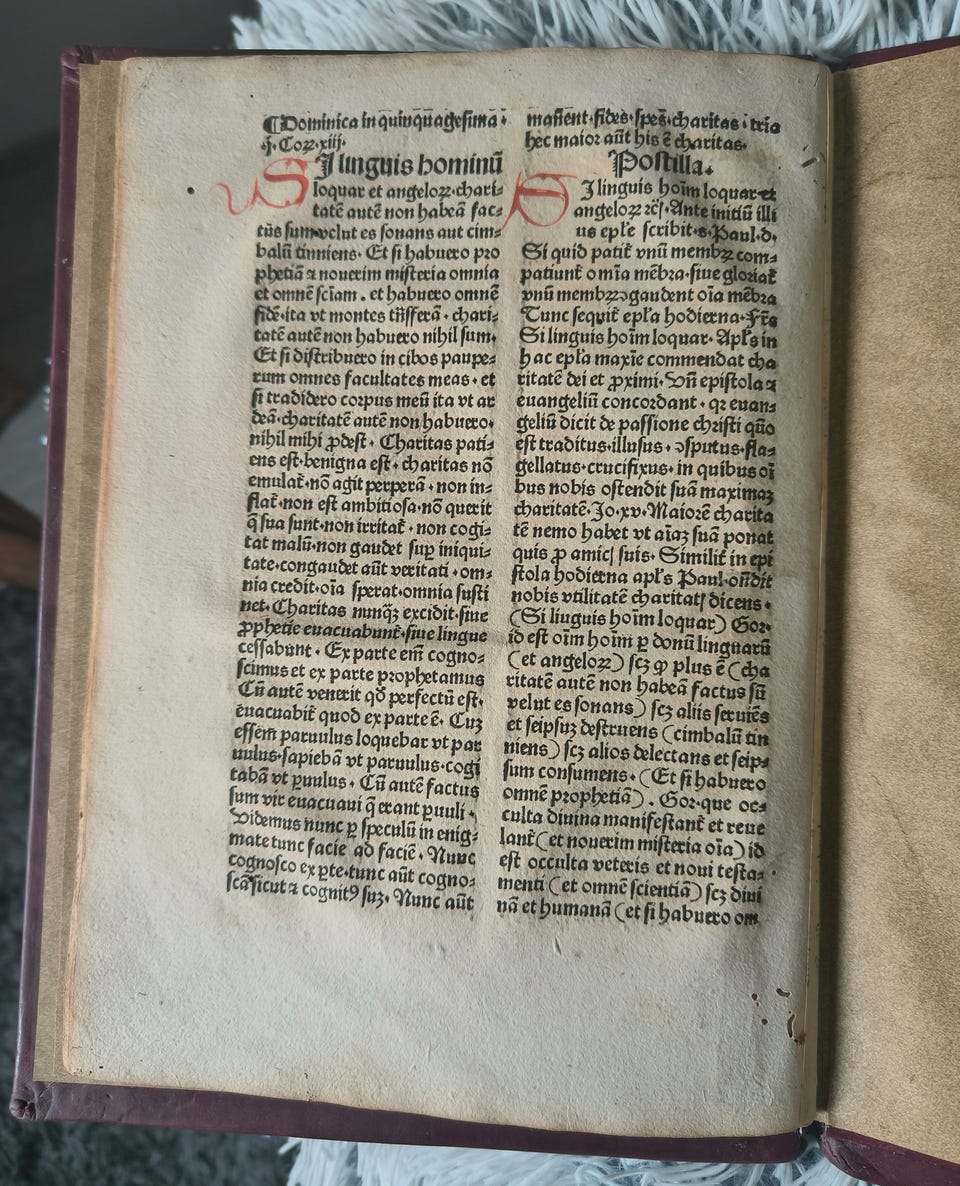 ¶Dominica in quinquagesima ·
·j· Coꝝ·xiij·
SI linguis hominū
loquar et angeloꝝ·chari⸗
tatē autē non habeā fac⸗
tūs sum·velut es sonans aut cim⸗
balū tinniens· Et si habuero pro
phetiā ⁊ nouerim misteria omnia
et omnē sciam · et habuero omnē
fidē·ita vt montes trāsferā · chari⸗
tatē autē non habuero nihil sum·
Et si distribuero in cibos paupe⸗
rum omnes facultates meas · et
si tradidero corpus meū ita vt ar
deā·charitatē autē non habuero·
nihil mihi ꝓdest · Charitas pati⸗
ens est·benigna est · charitas nō
emulat̄·nō agit perperā · non in⸗
flat̄·non est ambitiosa·nō querit
q̄ sua sunt·non irritat̄ · non cogi⸗
tat malū·non gaudet suꝑ iniqui⸗
tate·congaudet aūt veritati · om⸗
nia credit·oīa sperat·omnia susti
net· Charitas nunqꝫ excidit·siue
ꝓphetie euacuabunt̄·siue lingue
cessabunt · Ex parte em̄ cogno⸗
scimus et ex parte prophetamus
Cū autē venerit qd̄ perfectū est·
euacuabit̄ quod ex parte ē· Cuꝫ
essem paruulus loquebar vt par
uulus·sapiebā vt paruulus·cogi
tabā vt ꝑuulus · Cū autē factus
sum vir euacuaui q̄ erant ꝑuuli ·
Videmus nunc ꝑ speculū in enig⸗
mate tunc facie ad faciē · Nunc
cognosco ex ꝑte·tunc aūt cogno⸗
scā·sicut ⁊ cognitꝰ suꝫ· Nunc aūt
manent·fides·spes·charitas · tria
hec maior aūt his ē charitas·
Postilla·
SI linguis hoīm loquar et
angeloꝝ ⁊cꝭ·Ante initiū illi
us epl̄e scribit·s·Paul·d·
Si quid patit̄ vnū membꝝ com⸗
patiunt̄ omīa mēbra·siue gloriat̄
vnū membꝝ ꝯgaudent oīa mēbra
Tunc sequit̄ epl̄a hodierna·Fr̄s
Si linguis hoīm loquar· Apl̄s in
hac epl̄a maxīe commendat cha
ritatē dei et ꝓximi· Vn̄ epistola ⁊
euangeliū concordant · qꝛ euan⸗
geliū dicit de passione christi quō
est traditus·illusus · ꝯsputus·fla⸗
gellatus·crucifixus· in quibus oī
bus nobis ostendit suā maximaꝫ
charitatē·Jo·xv·Maiorē charita
tē nemo habet vt aīaꝫ suā ponat
quis ꝓ amicꝭ suis· Similit̄ in epi
stola hodierna apl̄s Paul·on̄dit
nobis vtilitatē charitatꝭ dicens ·
(Si liuguis hoīm loquar) Gor·
id est oīm hoīm ꝑ donū linguarū
(et angeloꝝ) scꝫ ꝙ plus ē (cha
ritatē autē non habeā factus sū
velut es sonans) scꝫ aliis seruiēs
et seipsuꝫ destruens (cimbalū tin
niens) scꝫ alios delectans et seip⸗
sum consumens· (Et si habuero
omnē prophetiā) · Gor·que oc⸗
culta diuina manifestant̄ et reue
lant̄ (et nouerim misteria oīa) id
est occulta veteris et noui testa⸗
menti (et omnē scientiā) scꝫ diui
nā et humanā (et si habuero om